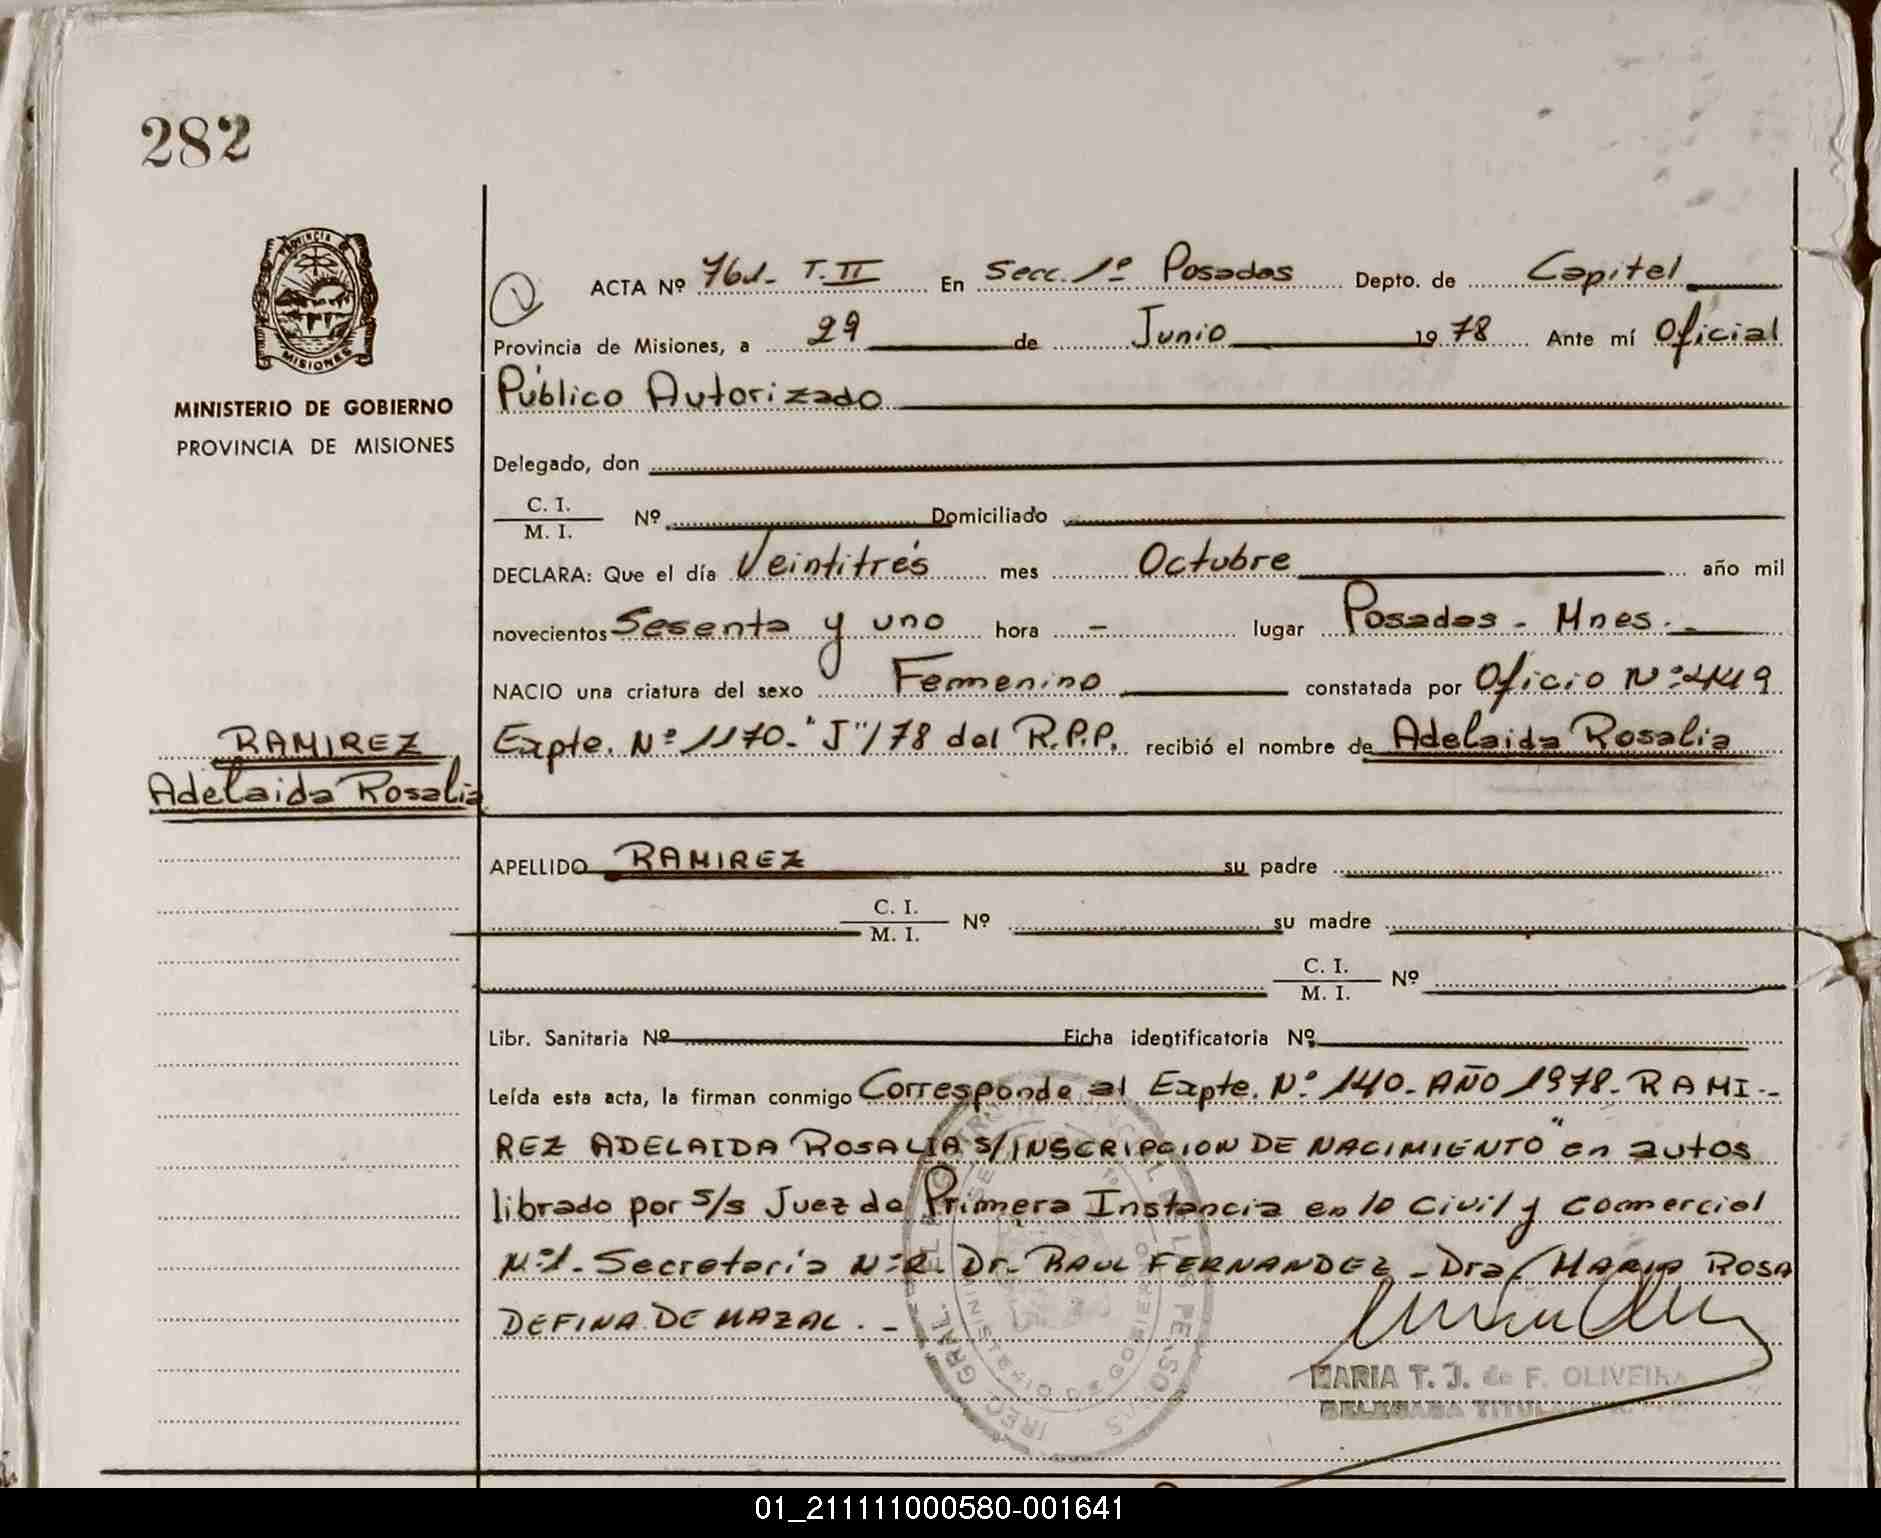 282
PROVINCIA DE
MISIONES
MINISTERIO DE GOBIERNO
PROVINCIA DE MISIONES
ACTA Nº 761- T. II En Secc. 1º Posadas Depto. de Capital
Provincia de Misiones, a 29 de Junio 1978 Ante mí Oficial
Público Autorizado
Delegado, don
C. I.
M. I. Nº Domiciliado
DECLARA: Que el día Veintitrés mes Octubre año mil
novecientos Sesenta y uno hora - lugar Posadas - Mnes.
NACIO una criatura del sexo Femenino constatada por Oficio Nº 449
Expte. Nº 1170-"J"/78 del R.P.P. recibió el nombre de Adelaida Rosalia
RAMIREZ
Adelaida Rosalia
APELLIDO RAMIREZ su padre
C. I.
M. I. Nº su madre
C. I.
M. I. Nº
Libr. Sanitaria Nº Ficha identificatoria Nº
Leída esta acta, la firman conmigo Corresponde al Expte. Nº 140- AÑO 1978- RAMI-
REZ ADELAIDA ROSALIA S/INSCRIPCION DE NACIMIENTO" en autos
librado por S/s Juez de Primera Instancia en lo Civil y Comercial
Nº1- Secretaría Nº2. Dr. RAUL FERNANDEZ - Dra. MARIA ROSA
DEFINA DE MAZAL. -
MARIA T. J. de F. OLIVEIRA
DELEGADA TITULAR
01_211111000580-001641